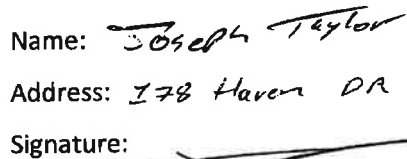 Name: Joseph Taylor
Address: 178 Haven DR
Signature: